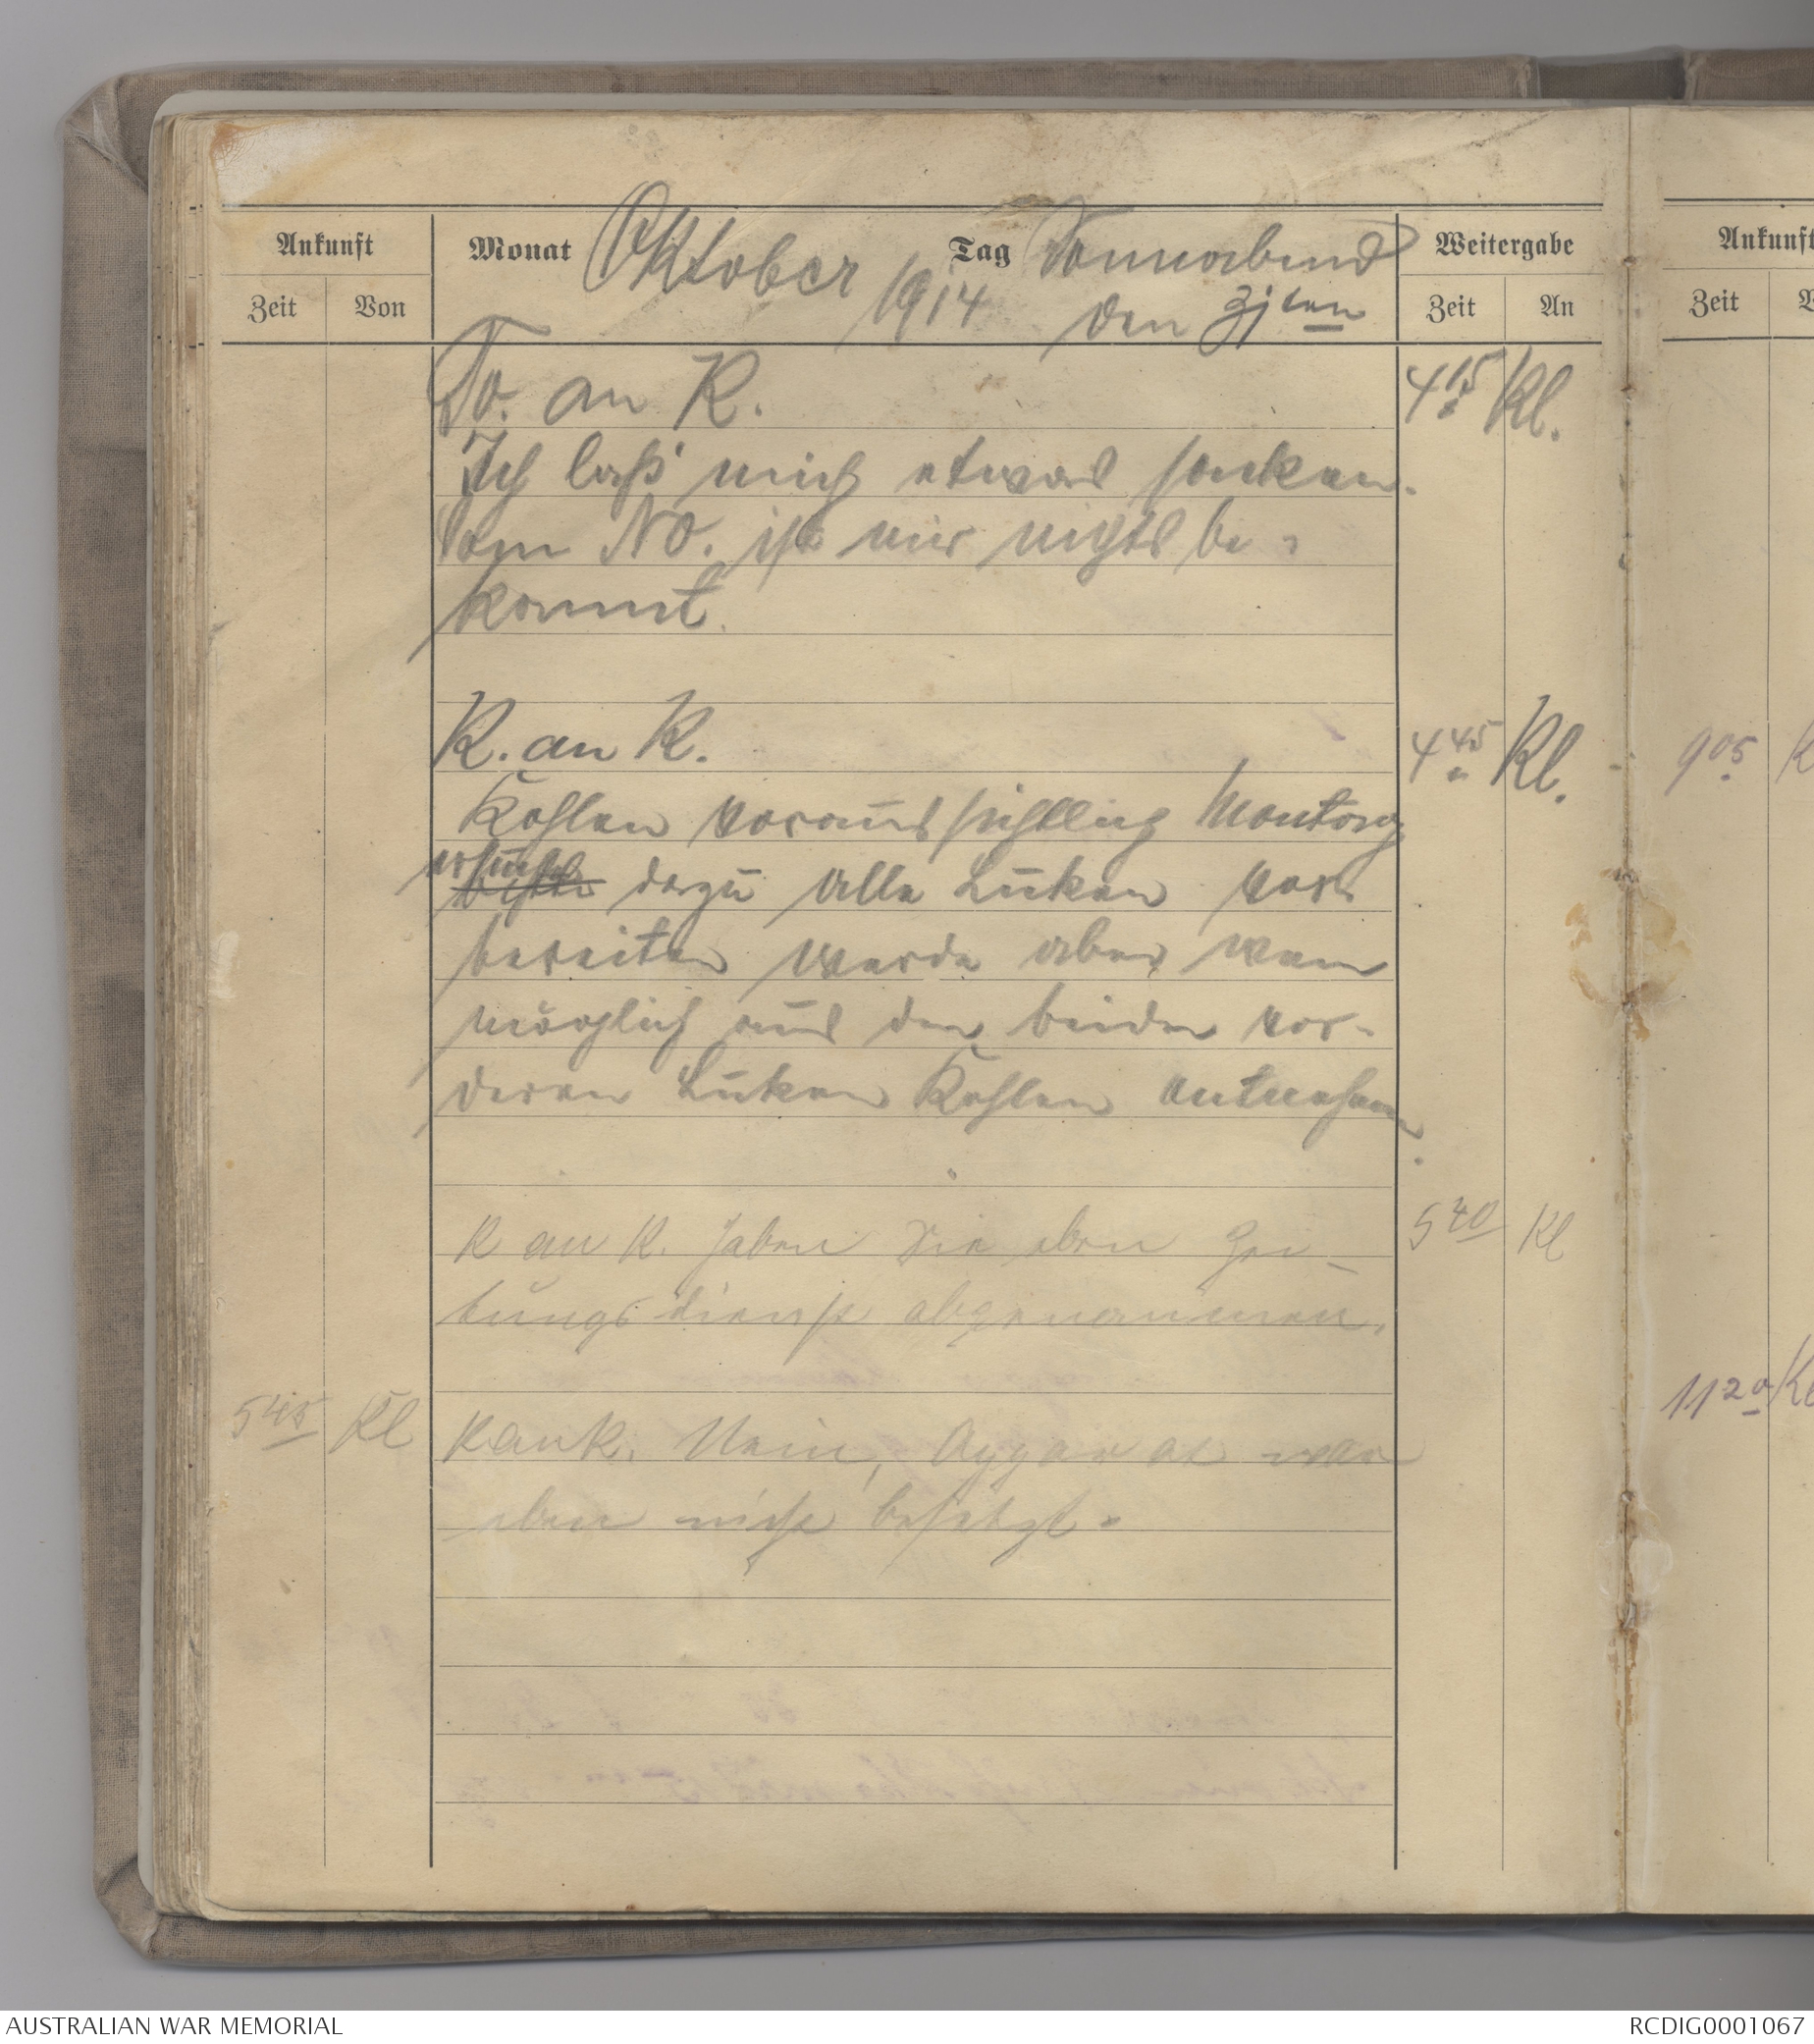 Ankunft
Monat Oktober 1914
Tag Sonnabend den 31ten
Weitergabe
Zeit Von Zeit An
To. an K. 4 15 Kl.
Ich laß mich etwas sacken.
Vom NO. ist mir nichts be-
kannt.
K. an K. 4 45 Kl.
Kohlen voraussichtlich Montag
ersuche dazu alle Luken vor-
bereiten werde aber wenn
möglich aus den beiden vor-
deren Luken Kohlen entnehmen.
K an K. Haben Sie eben Zei- 5 40 Kl
tungsdienst abgenommen.
5 45 Kl K an K. Nein, Apparat war
eben nicht besetzt.
Ankunft
Zeit
9 05 K
11 20 Kl
AUSTRALIAN WAR MEMORIAL
RCDIG0001067